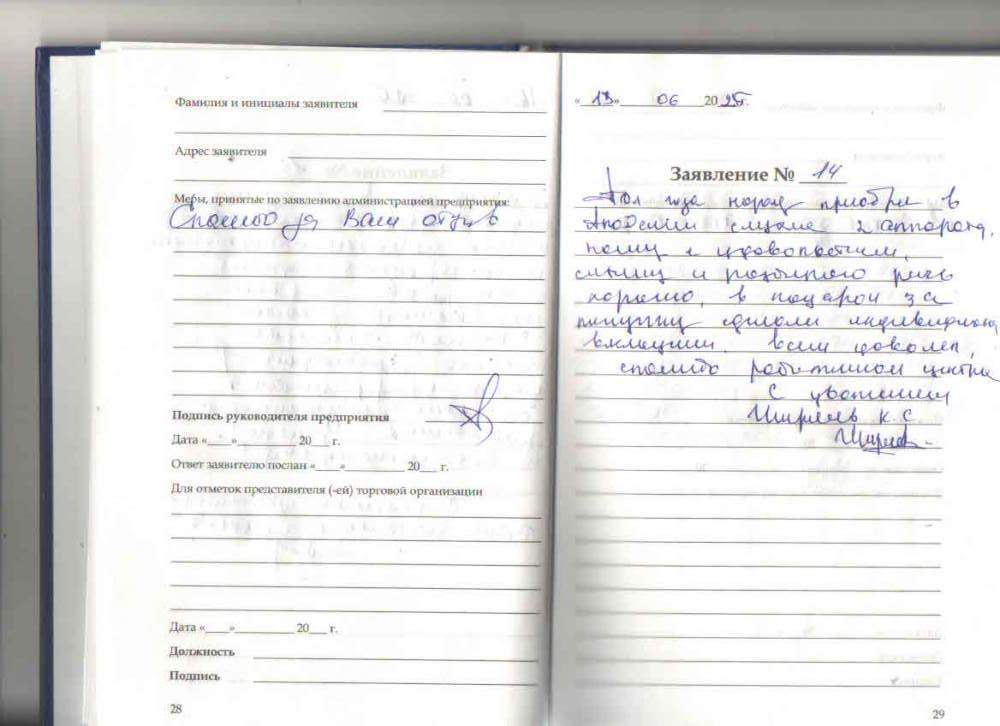 Фамилия и инициалы заявителя
Адрес заявителя
Меры, принятые по заявлению администрацией предприятия:
Спасибо за Ваш отзыв
Подпись руководителя предприятия
Дата «___»_________ 20___ г.
Ответ заявителю послан «___»_________ 20___ г.
Для отметок представителя (-ей) торговой организации
Дата «___»_________ 20___ г.
Должность
Подпись
28
«13» 06 2025г.
Заявление № 14
Пол года назад приобрел в
Академии слуха 2 аппарата,
ношу с удовольствием,
слышу и разбираю речь
хорошо, в подарок за
покупку сделали
вкладыши. Всем доволен,
спасибо работникам центра
С уважением
Ширяев К.С.
29